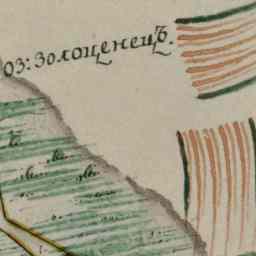 оз: Золоценецъ.